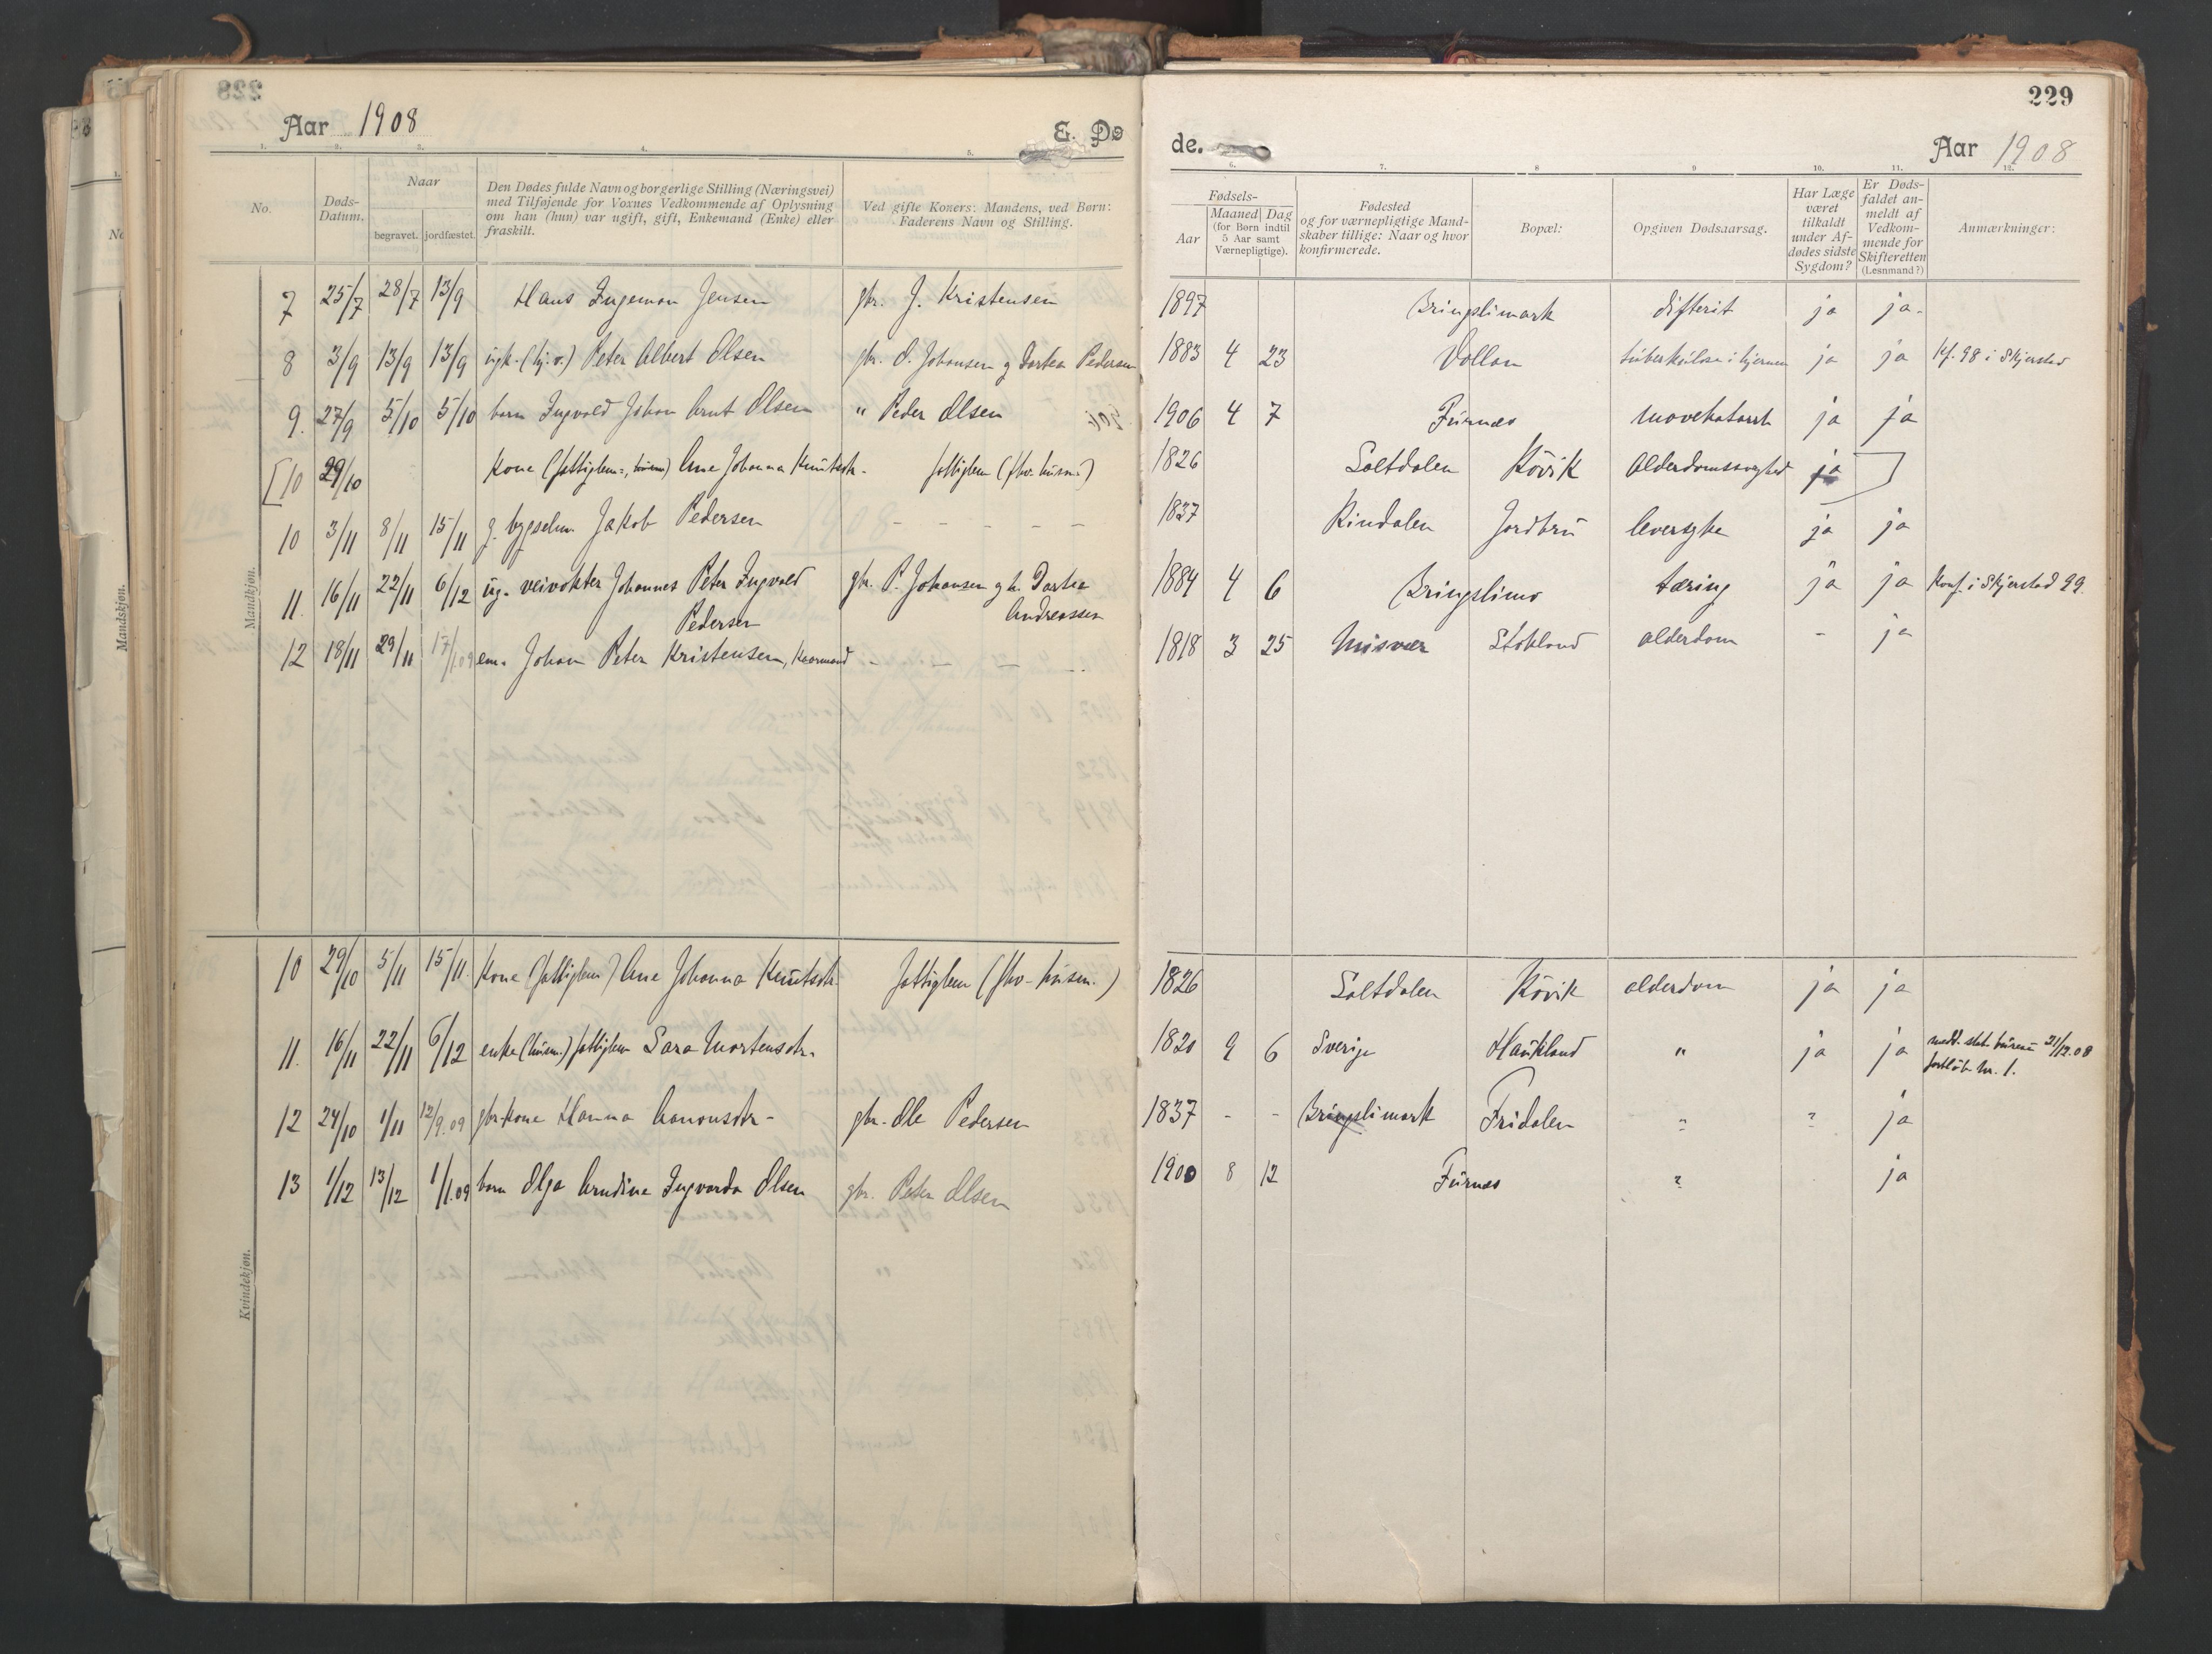 Aar 1908
E. Dø
de.
229
Aar 1908
No.
Døds-Datum.
Naar
begravet. jordfæstet.
Den Dødes fulde Navn og borgerlige Stilling (Næringsvei)
med Tilføjende for Voxnes Vedkommende af Oplysning
om han (hun) var ugift, gift, Enkemand (Enke) eller
fraskilt.
Ved gifte Koners: Mandens, ved Børn:
Faderens Navn og Stilling.
Fødsels-
Aar
Maaned Dag
(for Børn indtil
5 Aar samt
Værnepligtige).
Fødested
og for værnepligtige Mand-
skaber tillige: Naar og hvor
konfirmerede.
Bopæl:
Opgiven Dødsaarsag.
Har Læge
været
tilkaldt
under Af-
dødes sidste
Sygdom?
Er Døds-
faldet an-
meldt af
Vedkom-
mende for
Skifteretten
(Lensmand?)
Anmærkninger:
Mandkjøn.
7 25/7 28/7 13/9 Hans Ingeman Jensen gbr. J. Kristensen 1897 Bringslimark difterit ja ja.
8 3/9 13/9 13/9 Peter Albert Olsen gbr. O. Johansen g Dortea Pedersen 1883 4 23 Vollan tuberkulose i hjernen ja ja Kf. 98 i Skjerstad
9. 27/9 5/10 5/10 barn Ingvald Johan Arnt Olsen " Peder Olsen 1906 4 7 Furnes mavekatarrh ja ja
[10 29/10 Kone (fattiglem) Ane Johanna Knutsdtr. fattiglem (fhv. husm.) 1826 Saltdalen Kövik Alderdomssvaghed ja ]
10 3/11 8/11 15/11 g. bygselm. Jakob Pedersen – – – – – 1837 Rindalen Jordbru leversyke ja ja
11. 16/11 22/11 6/12 ug. veivokter Johannes Peter Ingvald Pedersen gbr. P. Johansen g h. Dortea Andreassen 1884 4 6 Bringslimo tæring ja ja Konf. i Skjerstad 99.
12 18/11 29/11 17/1.09 em. Johan Peter Kristensen, Kaarmand – – – – 1818 3 25 Misvær Stokland alderdom – ja
Kvindekjøn.
10 29/10 5/11 15/11. Kone (fattiglem) Ane Johanna Knutsdtr. fattiglem (fhv. husm.) 1826 Saltdalen Kövik alderdom ja ja
11. 16/11 22/11 6/12 enke (husm.) fattiglem Sara Mortensdtr. 1820 9 6 Sverige Haukland " ja ja medd. stat. büreau 21/12.08
fortløb. nr. 1.
12 24/10 1/11 12/9.09 gbr.kone Hanna Aronsdtr. gbr. Ole Pedersen 1837 - - Bringslimark Fridalen ? ? ja
13 1/12 13/12 1/1.09 barn Olga Arndine Ingvarda Olsen gbr. Peter Olsen 1900 8 12 Furnes ? ja
Mandskjøn.